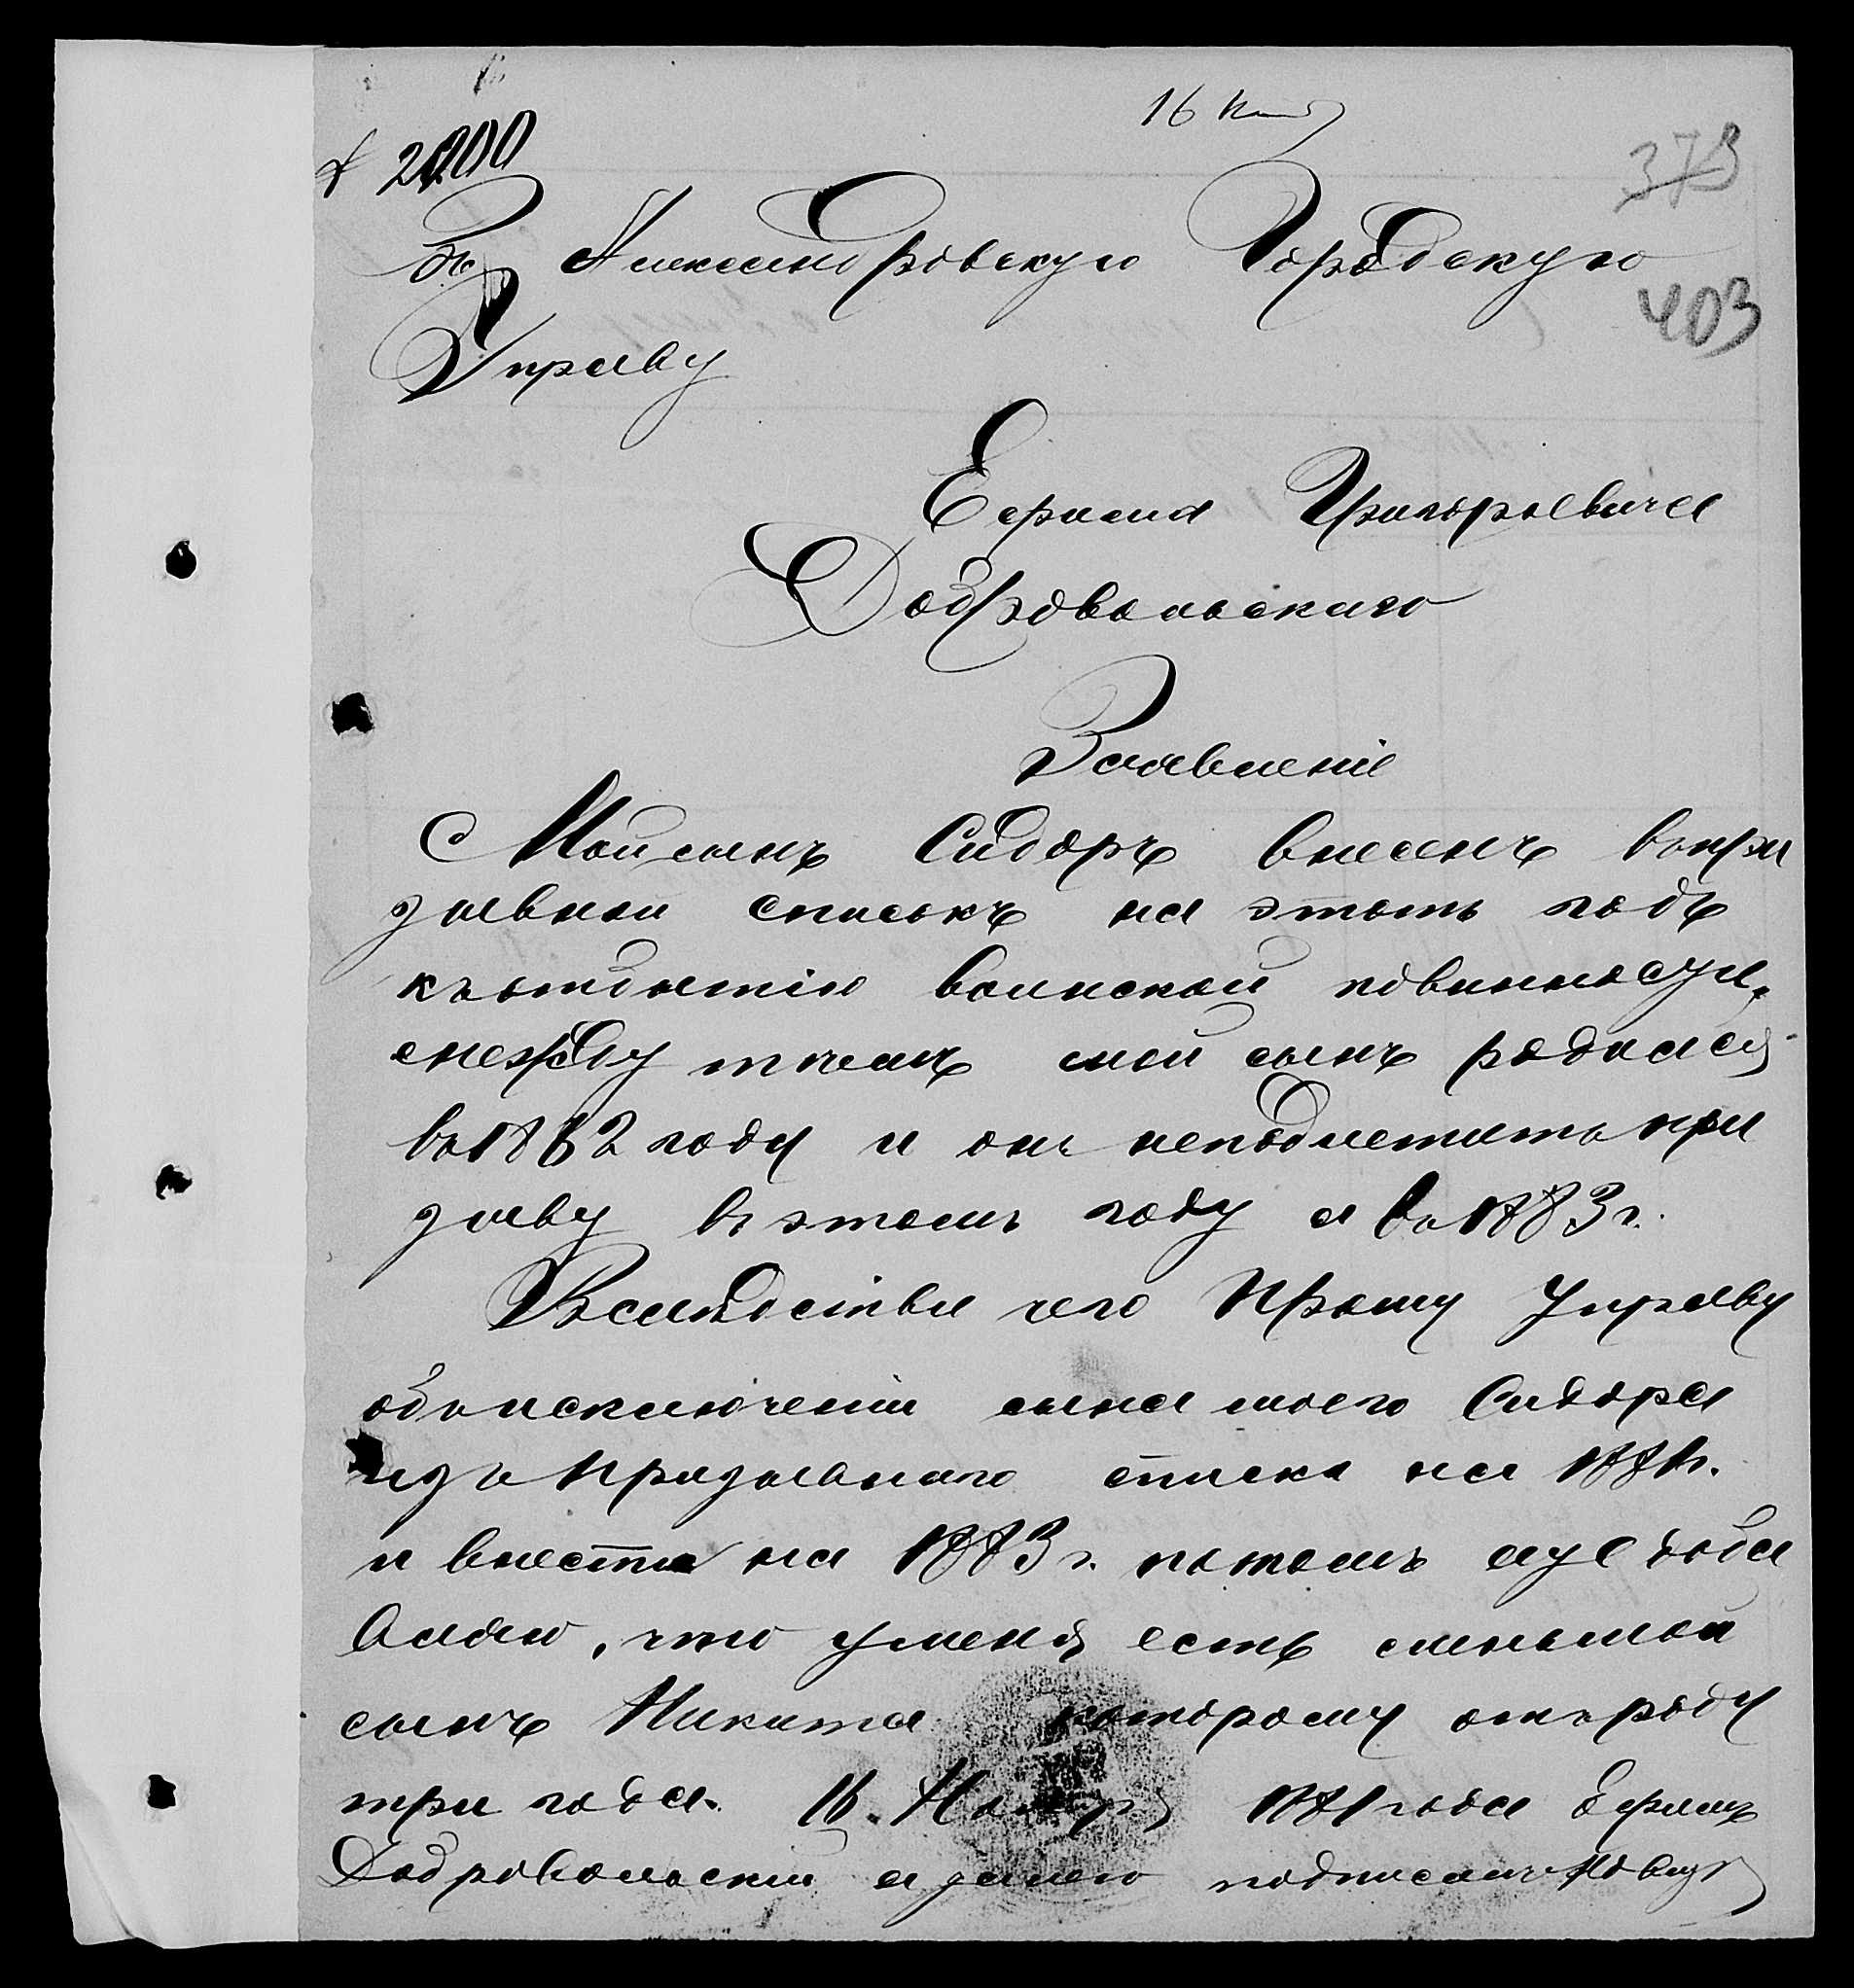 16
2200
373
Въ Александровскую Городскую
403
Управу
Ефима Григорьевича
Добровольскаго
Заявленіе
Мой сынъ Сидоръ внесенъ вопри
зывной списокъ на этотъ годъ
къотбытію воинской повинносци,
между тѣмъ мой сынъ родился
въ 1862 году и онъ неподлетитъ при
зыву въ этомъ году а въ 1883 г.
Вслѣдствіи чего Прошу Управу
объисключеніи сына моего Сидора
изъ Призывнаго списка на 1881 г.
и внести на 1883 г. потомъ ауе доба
вляю, что уменя есть меньшой
сынъ Никита которому отъроду
три года. 16. Ноября 1881 года Ефимъ
Добровольскій а занего подписалъ